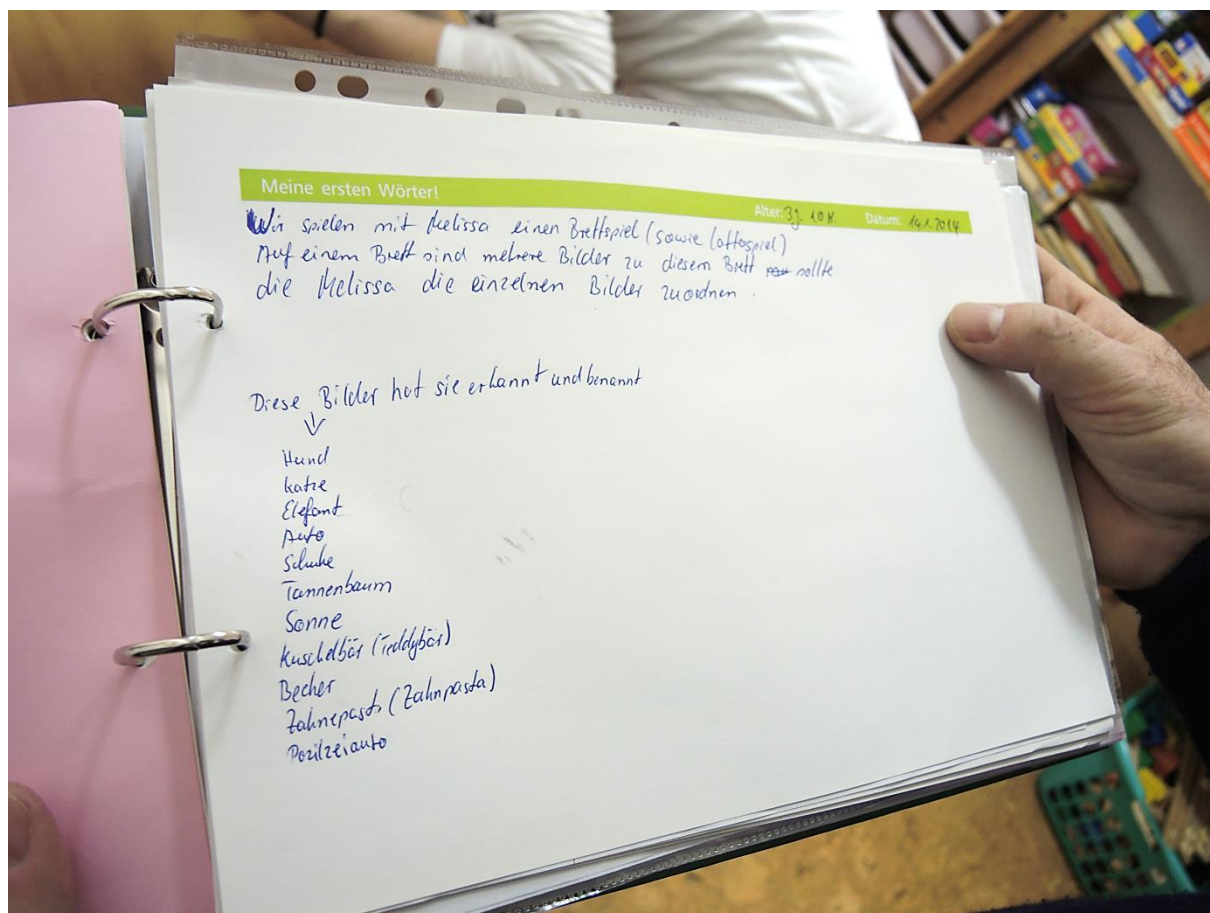 Meine ersten Wörter!
Alter: 3 J. 10 M. Datum: 14.1.2014
Wir spielen mit Melissa einen Brettspiel (sowie Lottospiel)
Auf einem Brett sind mehrere Bilder zu diesem Brett sollte
die Melissa die einzelnen Bilder zuordnen.
Diese Bilder hat sie erkannt und benannt
Hund
Katze
Elefant
Auto
Schuhe
Tannenbaum
Sonne
Kuschelbär (Teddybär)
Becher
Zahnepasta (Zahnpasta)
Pozilzeiauto